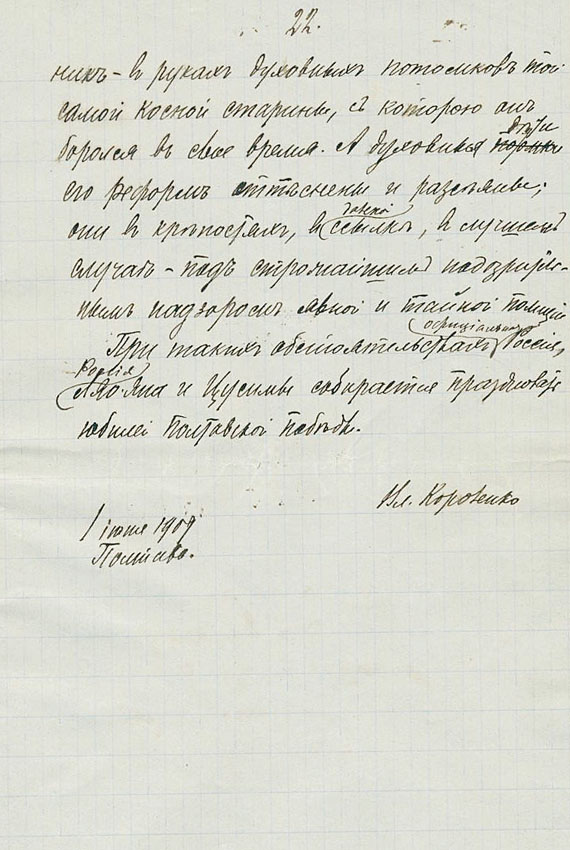 22.
никъ - въ рукахъ духовныхъ потомковъ той
самой косной старины, съ которою онъ
дѣти
боролся въ свое время. А духовныя
его реформъ оттѣснены и разсѣяны;
они въ крѣпостяхъ, въ ссылкѣ, въ лучшемъ
случаѣ - подъ строжайшимъ подозритель-
нымъ надзоромъ явной и тайной полиціи
оффиціальная
При такихъ обстоятельствахъ Россія,
Россія
Ляояна и Цусимы собирается праздновать
юбилей Полтавской побѣды.
Вл. Короленко
1 іюня 1909
Полтава.